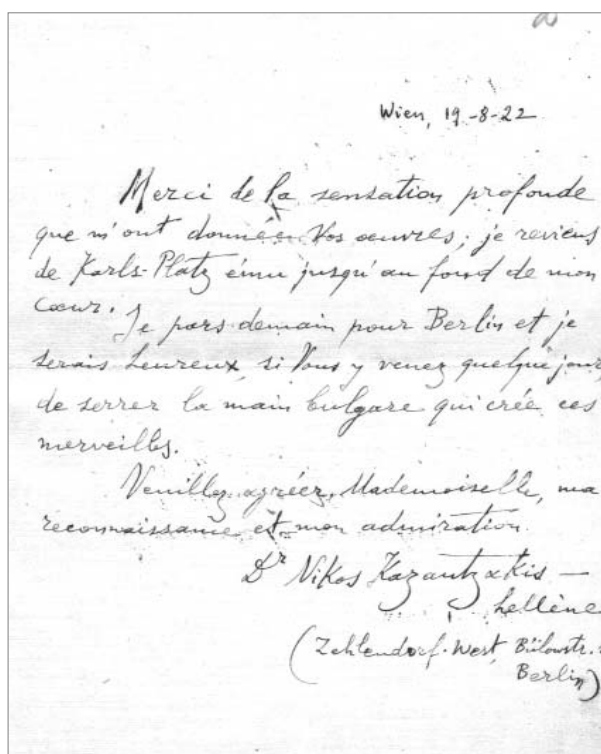 Wien, 19-8-22
Merci de la sensation profonde
que m'ont donnée Vos œuvres; je reviens
de Karls-Platz ému jusqu'au fond de mon
cœur. Je pars demain pour Berlin et je
serais heureux, si Vous y venez quelque jour,
de serrer la main bulgare qui crée ces
merveilles.
Veuillez agréer, Mademoiselle, ma
reconnaissance et mon admiration.
Dr Nikos Kazantzakis —
hellène
(Zehlendorf-West, Bülowstr.
Berlin)